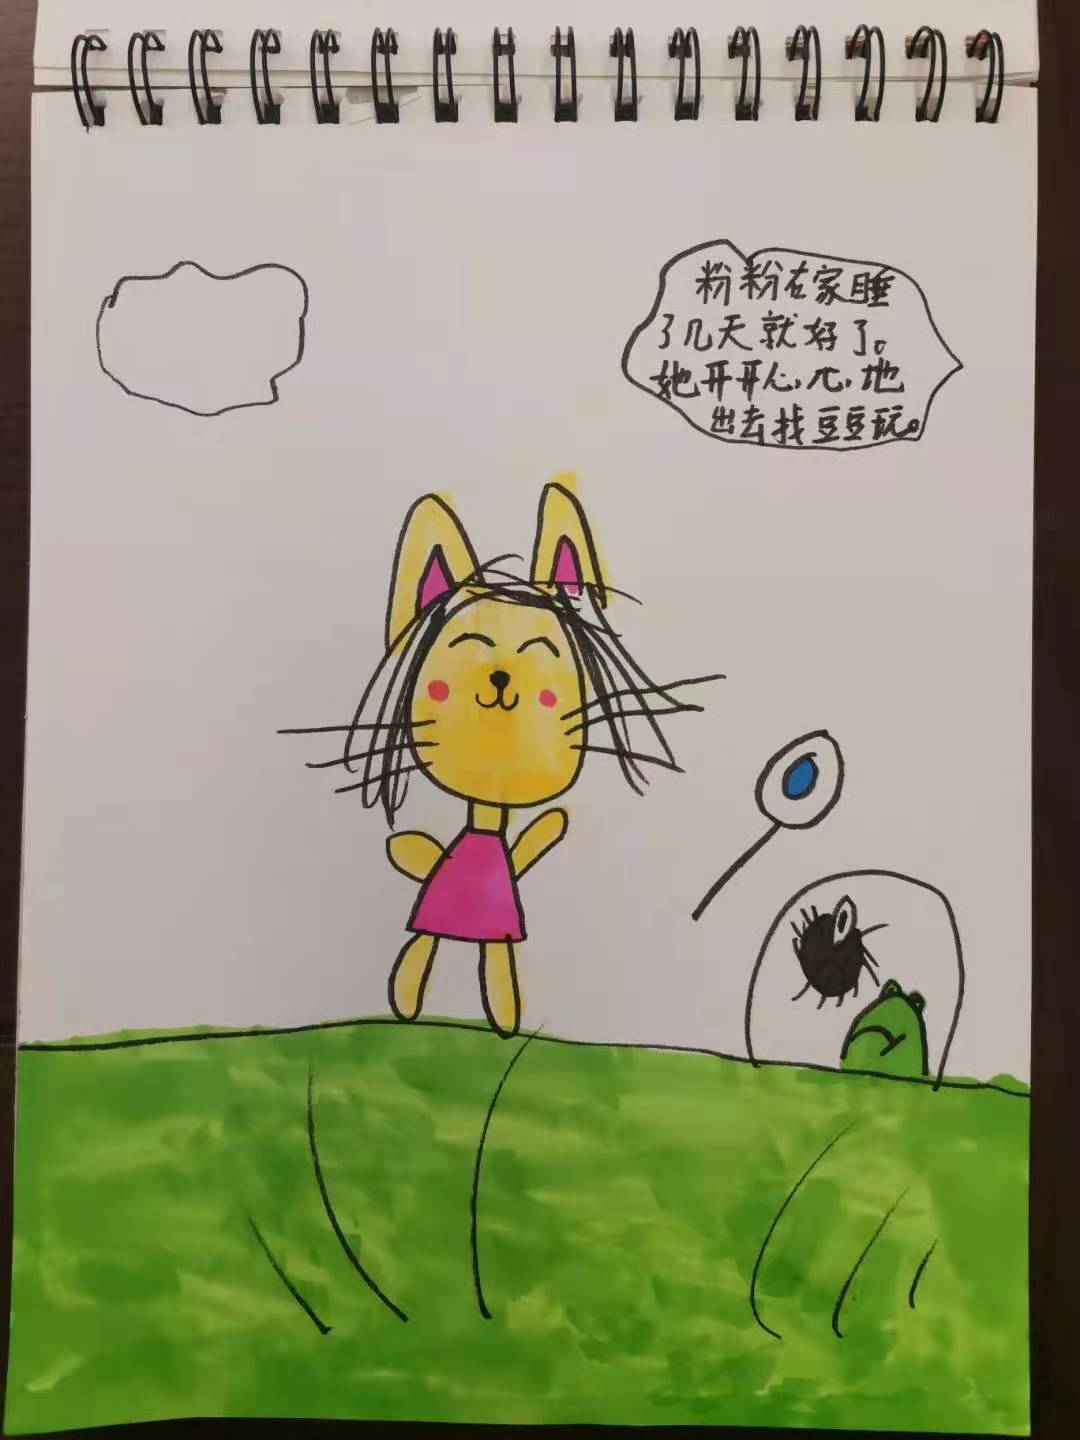 粉粉在家睡
了几天就好了。
她开开心心地
出去找豆豆玩。